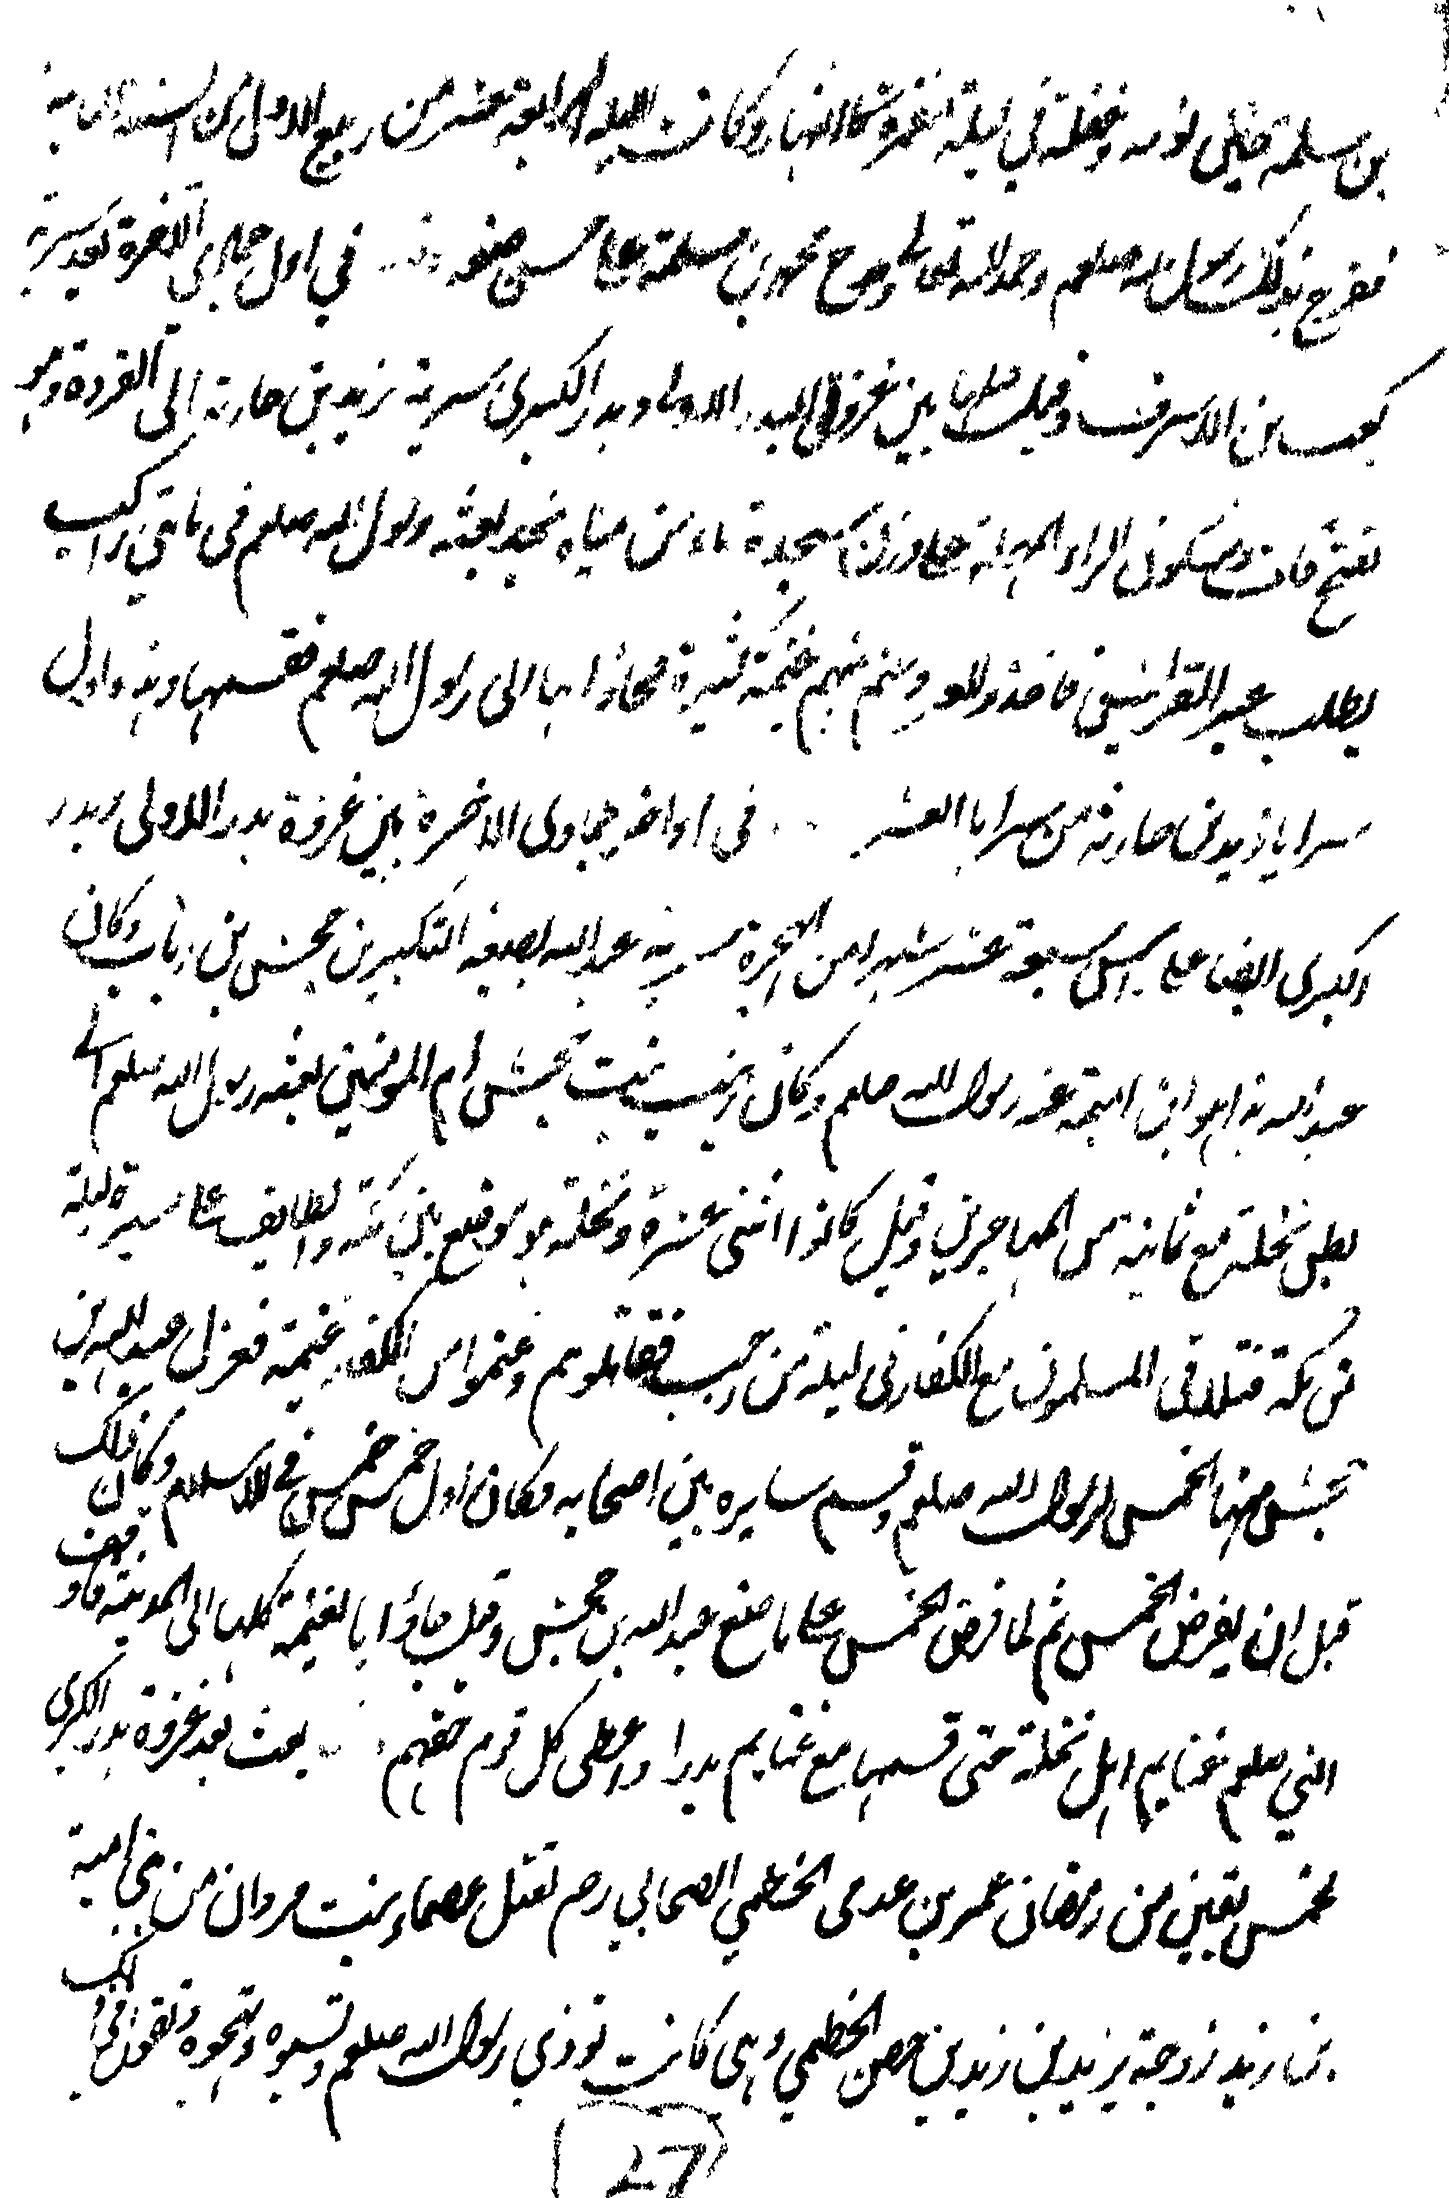 بن سلمة حتى نومه وغفلة في ليلة مقمرة كالنهار وكانت الليلة الرابعة عشر من ربيع الاول من السنة الثالثة
ففرح بذلك رسول الله صلعم وحمد الله تعالى ومدح محمد بن مسلمة على حسن صنعه في اول جمادى الاخرة بعد سرية
كعب بن الاشرف وقيل فيما بين غزوتي البدر الاولى وبدر الكبرى سرية زيد بن حارثة الى القردة وهو
بفتح قاف وسكون الراء المهملة على وزن سجدة ماء من مياه نجد بعثه رسول الله صلعم في مائتي راكب
يطلب عير القرشيين فاخذوا العير وغنم منهم غنيمة كثيرة فجاؤا بها الى رسول الله صلعم فقسمها وهذه اول
سرايا زيد بن حارثة من سرايا العشر في اواخر جمادى الاخرة بين غزوة بدر الاولى وبدر
الكبرى ايضا على راس سبعة عشر شهرا من الهجرة سرية عبد الله بصيغة التكبير بن جحش بن رباب وكان
عبد الله هذا هو ابن اميمة عمة رسول الله صلعم وكان زينب بنت جحش ام المومنين بعثه رسول الله صلعم الى
بطن نخلة مع ثمانية من المهاجرين وقيل كانوا اثنى عشرة ونخلة هو موضع بين مكة والطايف على مسيرة ليلة
من مكة فتلاقى المسلمون مع الكفار في ليلة من رجب فقاتلوهم وغنموا من الكفار غنيمة فعزل عبد الله بن
جحش منها الخمس لرسول الله صلعم وقسم سايره بين اصحابه فكان اول خمس خمس في الاسلام وكان ذلك
قبل ان يفرض الخمس ثم لما فرض الخمس على ما صنع عبد الله بن جحش وقيل جاؤا بالغنيمة كلها الى المدينة فاوقف
النبي صلعم غنايم اهل نخلة حتى قسمها مع غنايم بدرا واعطى كل قوم حقهم بعث بعد غزوة بدر الكبرى
لخمس بقين من رمضان عمير بن عدي الخطمي الصحابي رصم لقتل عصماء بنت مروان من بني امية
بن زيد زوجة يزيد بن زيد بن حصن الخطمي وهي كانت توذي رسول الله صلعم وتسبوه وتهجوه وتقول في ذلك
27